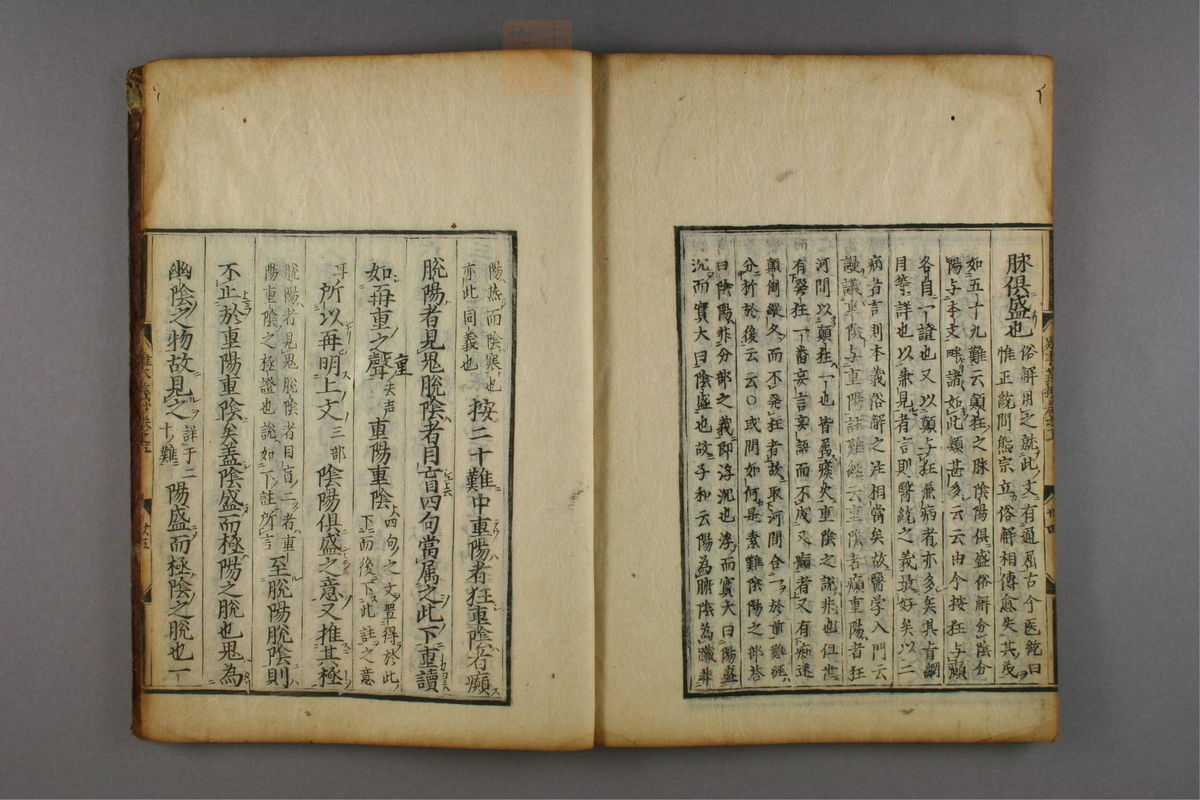 脉俱盛也
俗解用之就此文有通屈古今医統曰
惟正統間熊宗立俗解相傳愈失其
如五十九難云顛狂之脉陰陽俱盛俗解分陰分
陽与本文畔如此類甚多云云由今按狂与癲
各自一證也又以顛与狂兼病者亦多矣其綱
目詳也以兼見者言則醫統之義最好矣以二
病者言則本義俗解之注相當矣故醫学入門云
謾議重陰与重陽註難經云重陰者癲重陽者狂
河間以顛狂一也皆属痰火重陰之説非也但世
有發狂一番妄言妄語而不成久癲者又有痴迷
顛倒縱久而不発狂者故取河間合一於前難經
分折於後云云〇或問如何是素難陰陽之部荅
曰陰陽非分部之義即浮沉也浮而實大曰陽盛
沉而實大曰陰盛也故手和云陽為腑陰為臟非
陽熱而陰寒也
亦此同義也
按二十難中重陽者狂重陰者癲
脫陽者見鬼脫陰者目盲四句當属之此下重讀
如再重之聲
重
夫声
重陽重陰
四句之文置得於此
下而後下此註之意
耳
所以再明上文三部陰陽俱盛之意又推其極
脫陽者見鬼脫陰者目盲二者重
陽重陰之極證也說如下註所言
至脫陽脫陰則
不止於重陽重陰矣盖陰盛而極陽之脫也鬼為
幽陰之物故見之
詳于二
十難
陽盛而極陰之脫也一